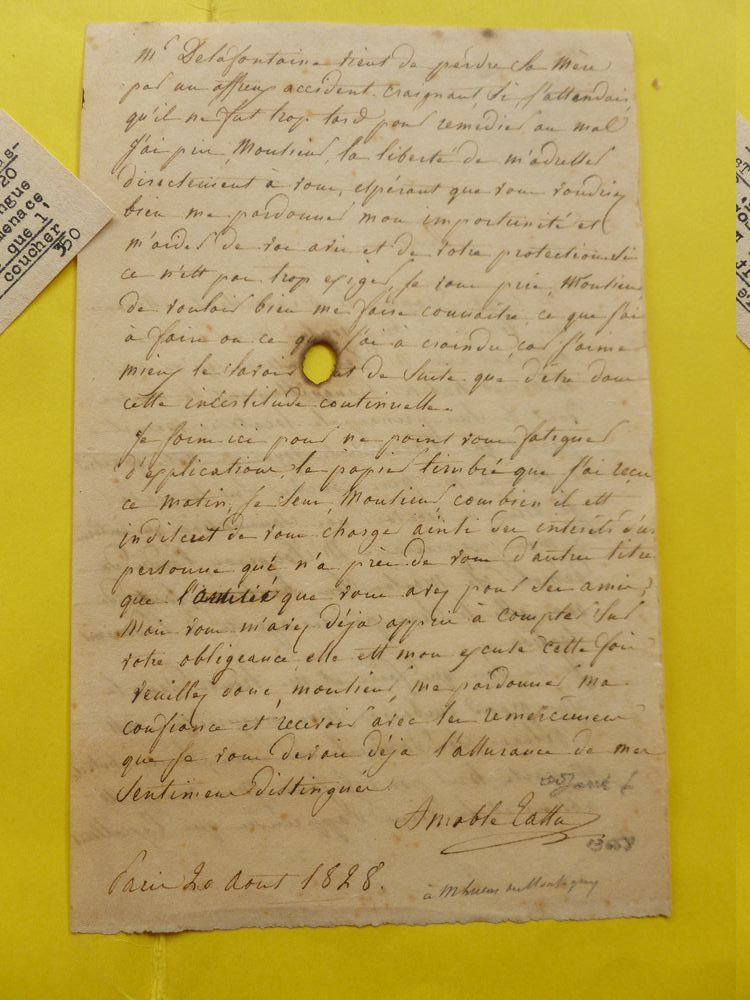 Mr Delafontaine vient de perdre sa Mère
par un affreux accident. craignant, si j'attendais,
qu'il ne fut trop tard pour remédier au mal
j'ai pris, Monsieur, la liberté de m'adresser
directement à vous, espérant que vous voudriez
bien me pardonner mon importunité et
m'aider de vos avis et de votre protection. Si
ce n'est pas trop exiger, je vous prie, Monsieur
de vouloir bien me faire connaitre, ce que j'ai
à faire ou ce que j'ai à craindre, car j'aime
mieux le savoir de suite que d'être dans
cette incertitude continuelle.
Je joins ici pour ne point vous fatiguer
d'explications, le papier timbré que j'ai reçu
ce matin, je sens, Monsieur, combien il est
indiscret de vous charger ainsi des intérêts d'une
personne qui n'a près de vous d'autre titre
que l'amitié que vous avez pour ses amis;
Mais vous m'avez déjà appris à compter sur
votre obligeance, elle est mon excuse cette fois
veuillez donc, monsieur, me pardonner ma
confiance et recevoir avec les remerciemens
que je vous devais déjà l'assurance de mes
Sentimens distingués.
Amable Tastu
Paris 20 Aout 1828.
20
ngue
menace
que l'
coucher
350